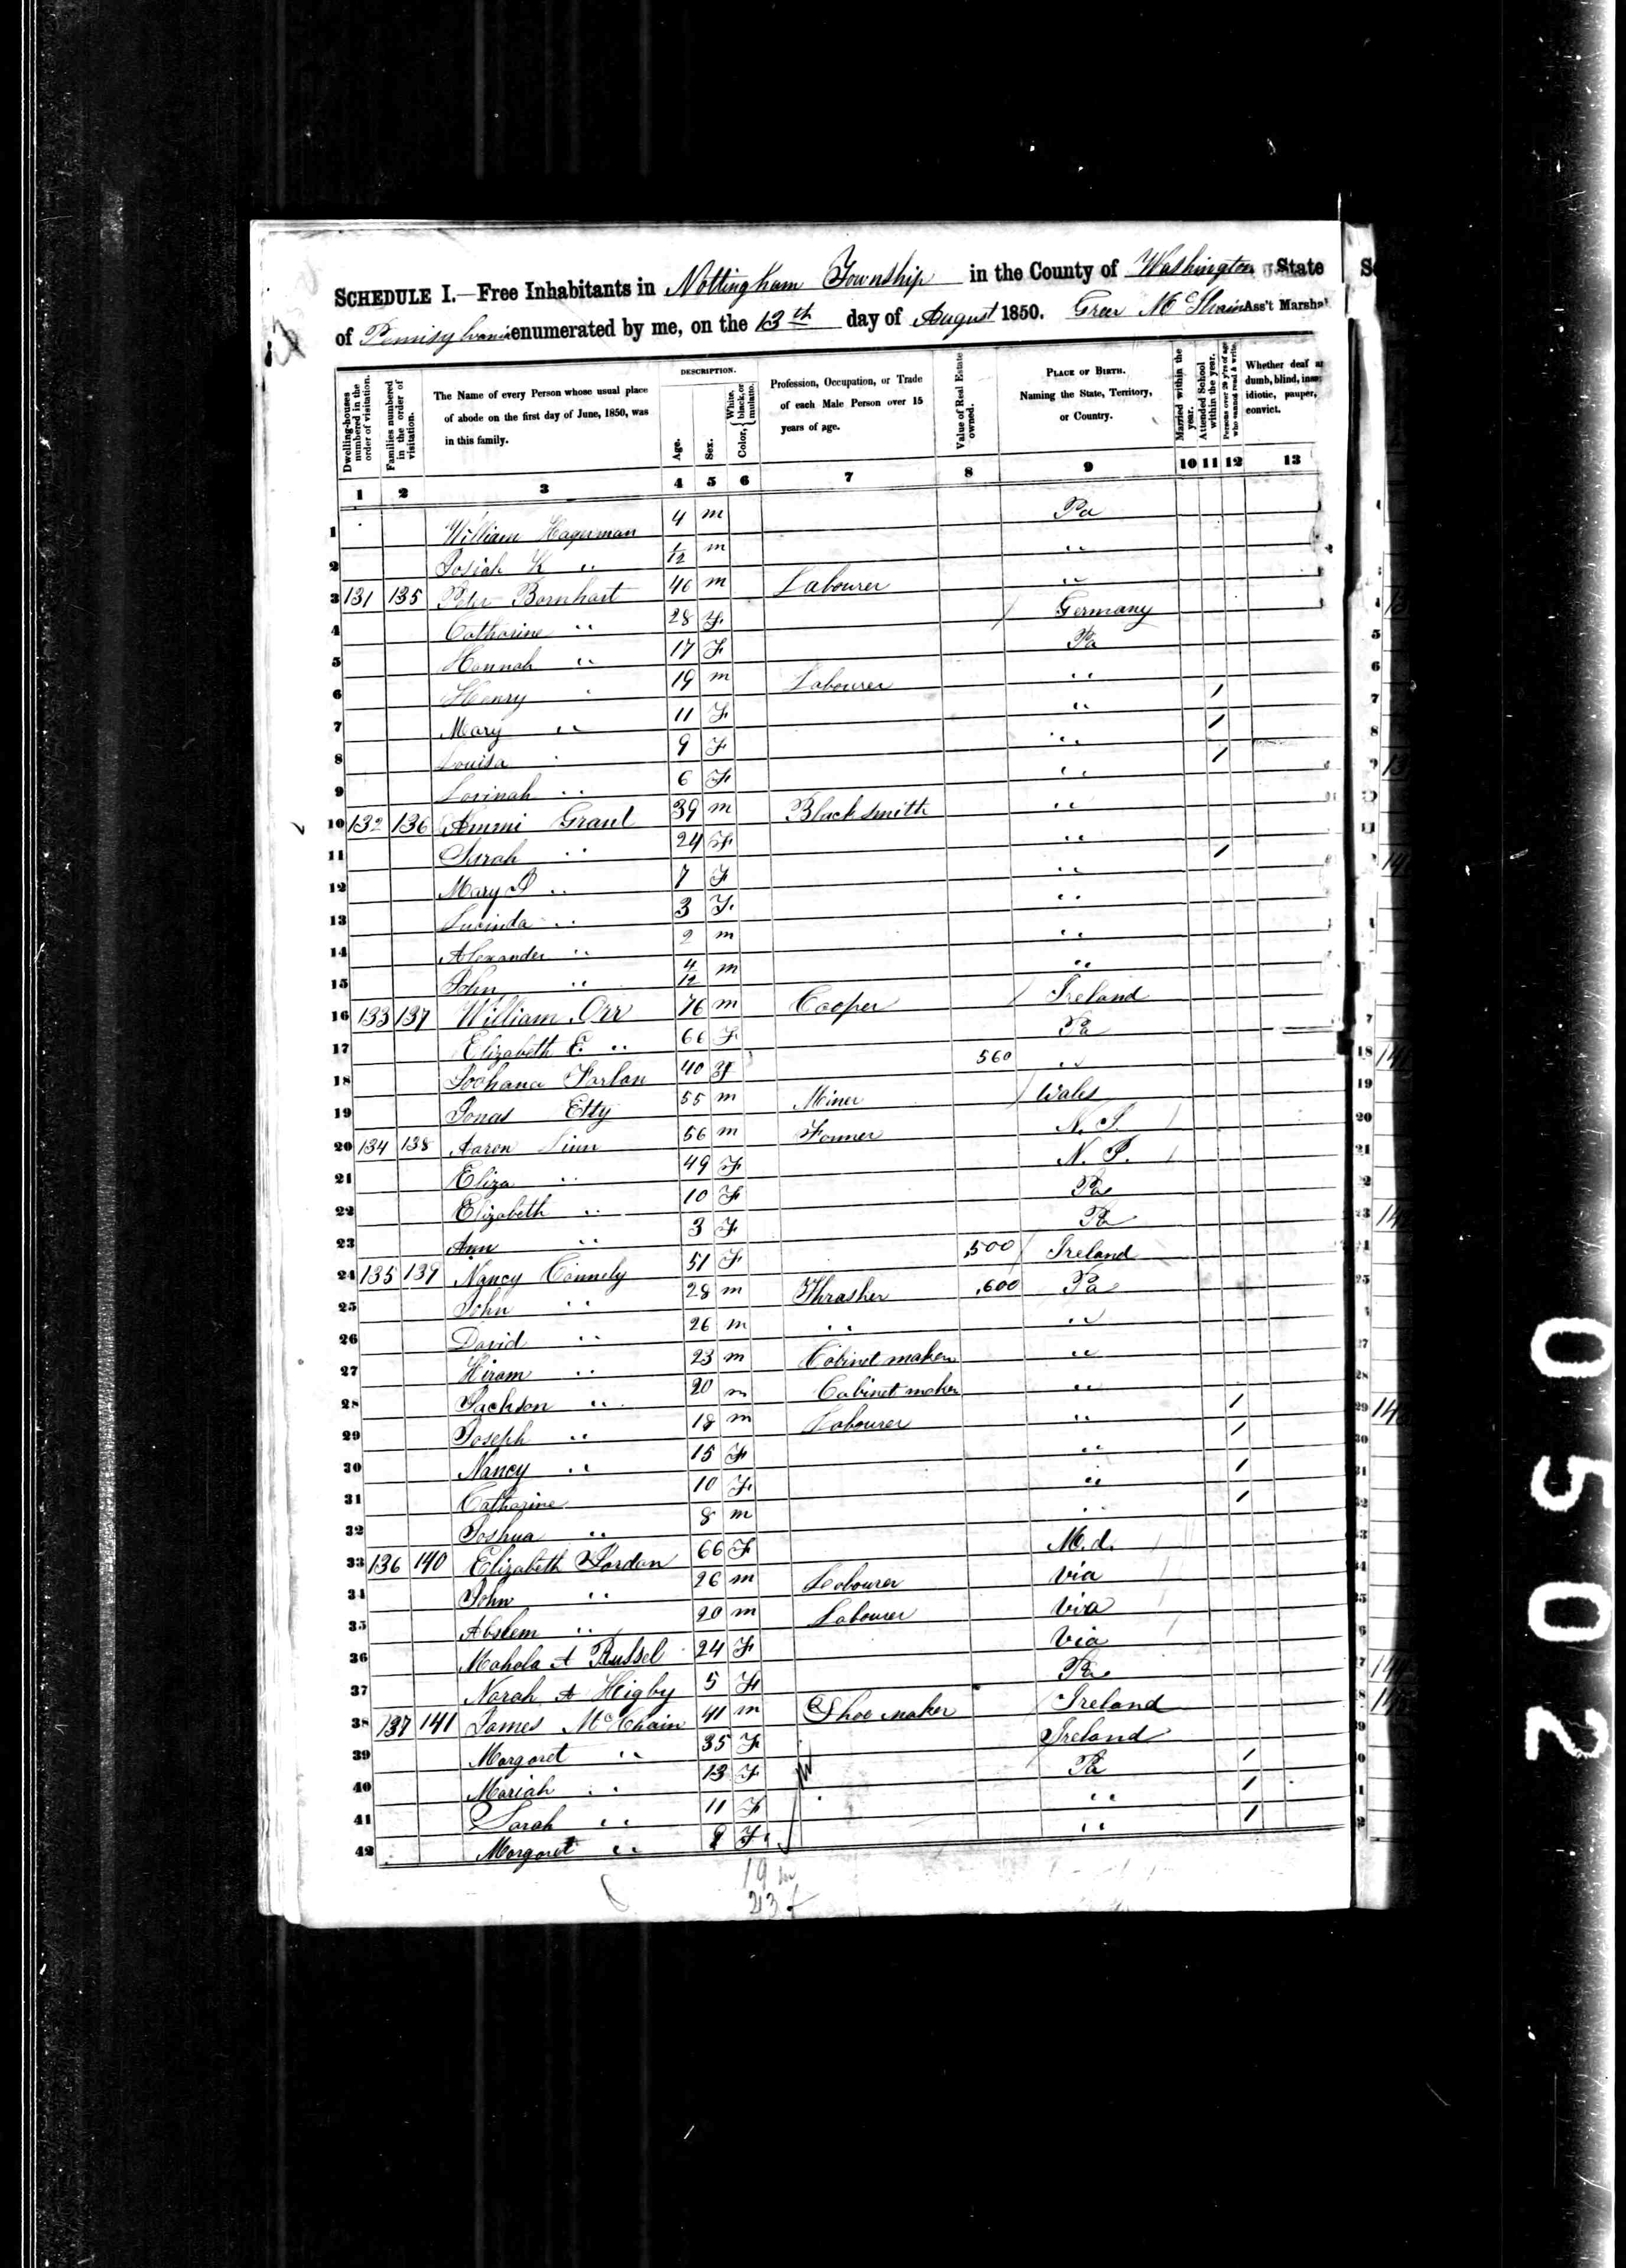 SCHEDULE I.—Free Inhabitants in Nottingham Township in the County of Washington State
of Pennsylvania enumerated by me, on the 13th day of August 1850. Greer McIlvain Ass't Marshal
Dwelling-houses numbered in the order of visitation.
Families numbered in the order of visitation.
The Name of every Person whose usual place of abode on the first day of June, 1850, was in this family.
DESCRIPTION.
Age.
Sex.
Color, White, black, or mulatto.
Profession, Occupation, or Trade of each Male Person over 15 years of age.
Value of Real Estate owned.
PLACE OF BIRTH. Naming the State, Territory, or Country.
Married within the year.
Attended School within the year.
Persons over 20 y'rs of age who cannot read & write.
Whether deaf and dumb, blind, insane, idiotic, pauper, convict.
1 2 3 4 5 6 7 8 9 10 11 12 13
1 William Hagerman 4 m Pa
2 Josiah K " 1/12 m "
3 131 135 Peter Bornhart 46 m Labourer "
4 Catharine " 28 F / Germany
5 Hannah " 17 F Pa
6 Henry " 19 m Labourer "
7 Mary " 11 F " /
8 Louisa " 9 F " /
9 Lovinah " 6 F " /
10 132 136 Ammi Grant 39 m Blacksmith "
11 Sarah " 24 F "
12 Mary J " 7 F " /
13 Lucinda " 3 F "
14 Alexander " 2 m "
15 John " 4/12 m "
16 133 137 William Orr 76 m Cooper / Ireland
17 Elizabeth E. " 66 F Pa
18 Farlan 40 F 560 "
19 Jonas Etty 55 m Miner / Wales
20 134 138 Aaron Linn 56 m Farmer N. J.
21 Eliza " 49 F N. J.
22 Elizabeth " 10 F Pa
23 Ann " 3 F Pa
24 135 139 Nancy Connely 51 F 500 / Ireland
25 John " 28 m Thrasher 600 Pa
26 David " 26 m " "
27 Hiram " 23 m Cabinet maker "
28 Jackson " 20 m Cabinet maker "
29 Joseph " 18 m Labourer " /
30 Nancy " 15 F " /
31 Catharine 10 F " /
32 Joshua " 8 m " /
33 136 140 Elizabeth Jordan 66 F M.d.
34 John " 26 m Labourer Via
35 Abslem " 20 m Labourer Via
36 Mahala A Russel 24 F Via
37 Norah A Higby 5 F Pa
38 137 141 James McChain 41 m Shoe maker / Ireland
39 Margaret " 35 F Ireland
40 Mariah " 13 F Pa /
41 Sarah " 11 F " /
42 Margaret " 8 F " /
19 m
23 f
0502